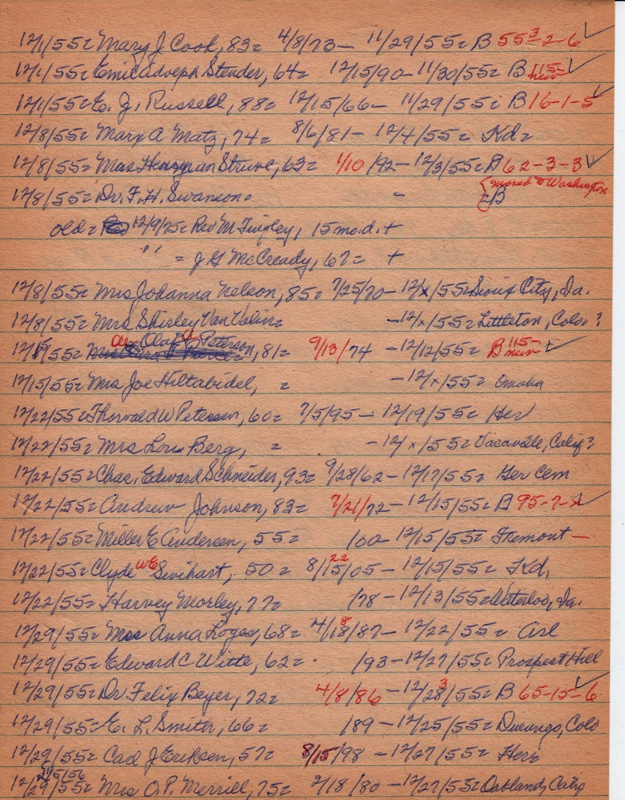 12/1/55= Mary J Cook, 83= 4/8/73 — 11/29/55= B 55-2-6 ✓
12/1/55= Emil Adolph Studer, 64= 12/15/90 — 11/30/55= B 115- ✓
12/1/55= E. J. Russell, 88= 12/15/66 — 11/29/55= B 16-1-5 ✓
12/8/55= Mary A Matz, 74= 8/6/81 — 12/4/55= Kd=
12/8/55= Mrs Herman Struve, 63= 1/10/92 — 12/3/55= B 62-3-3 ✓
12/8/55= Dr. F. H. Swanson= — =B {moved to Washington
old= 12/9/25= Rev M. Tingley, 15 mo.d. +
" = J G McCready, 67= +
12/8/55= Mrs Johanna Nelson, 85= 7/25/70 — 12/x/55= Sioux City, Ia.
12/8/55= Mrs Shirley Van Valin= — 12/x/55= Littleton, Colo. ?
12/15/55= Olaf Peterson, 81= 9/13/74 — 12/12/55= B 115- ✓
12/15/55= Mrs Joe Hiltabidel, = — 12/x/55= Omaha
12/22/55= Thorvald W Petersen, 60= 7/5/95 — 12/19/55= Her
12/22/55= Mrs Lorin Berg, = — 12/x/55= Vacaville, Calif ?
12/22/55= Chas. Edward Schneider, 93= 9/28/62 — 12/17/55= Her Cem
12/22/55= Andrew Johnson, 83= 7/21/72 — 12/15/55= B 95-7-x ✓
12/22/55= Miller E Andersen, 55= /00 — 12/15/55= Fremont —
12/22/55= Clyde WE Swihart, 50= 8/15/05 — 12/15/55= Kd,
22
12/22/55= Harvey Morley, 77= /78 — 12/13/55= Waterloo, Ia.
12/29/55= Mrs Anna Logay, 68= 4/18/87 — 12/22/55= Arl
12/29/55= Edward C Witte, 62= /93 — 12/27/55= Prospect Hill
12/29/55= Dr Felix Beyer, 72= 4/8/86 — 12/23/55= B 65-15-6 ✓
12/29/55= E. L. Smith, 66= /89 — 12/25/55= Durango, Colo
12/29/55= Carl J Eriksen, 57= 8/15/98 — 12/27/55= Her
1/5/56
12/29/55= Mrs O. P. Merrill, 75= 2/18/80 — 12/27/55= Oakland, Calif